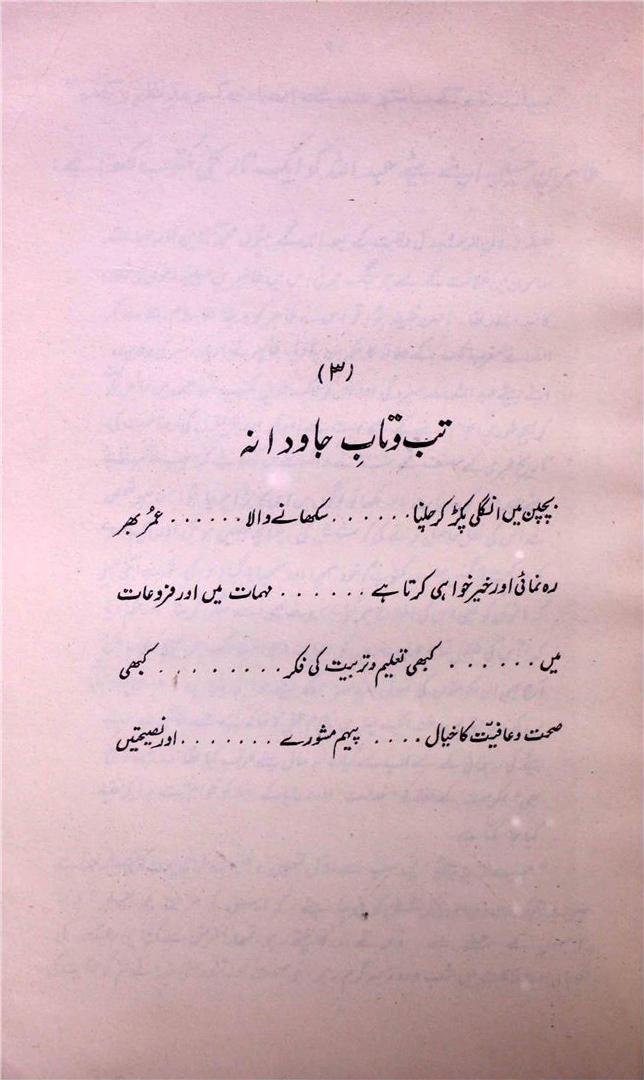 (۳)
تب و تابِ جاودانہ
بچپن میں انگلی پکڑ کر چلنا . . . . . . سکھانے والا . . . . . . عمُر بھر
رہ نمائی اور خیر خواہی کرتا ہے . . . . . . مہمات میں اور فروعات
میں . . . . . . کبھی تعلیم و تربیت کی فکر . . . . . . . . کبھی
صحت و عافیّت کا خیال . . . . پیہم مشورے . . . . . . . اور نصیحتیں